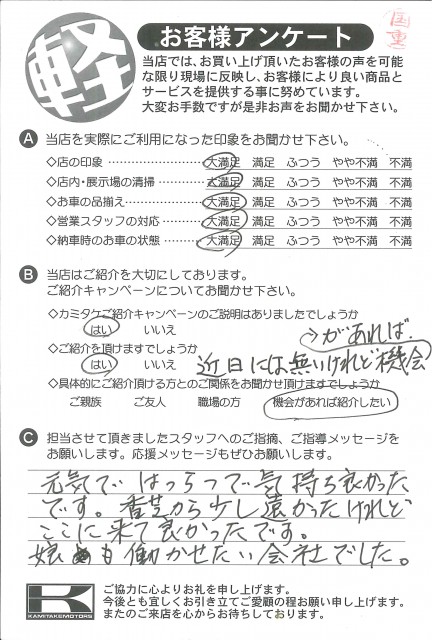 国重
軽
お客様アンケート
当店では、お買い上げ頂いたお客様の声を可能
な限り現場に反映し、お客様により良い商品と
サービスを提供する事に努めています。
大変お手数ですが是非お声をお聞かせ下さい。
A 当店を実際にご利用になった印象をお聞かせ下さい。
◇店の印象 大満足 満足 ふつう やや不満 不満
◇店内・展示場の清掃 大満足 満足 ふつう やや不満 不満
◇お車の品揃え 大満足 満足 ふつう やや不満 不満
◇営業スタッフの対応 大満足 満足 ふつう やや不満 不満
◇納車時のお車の状態 大満足 満足 ふつう やや不満 不満
B 当店はご紹介を大切にしております。
ご紹介キャンペーンについてお聞かせ下さい。
◇カミタケご紹介キャンペーンのご説明はありましたでしょうか
はい いいえ
◇ご紹介を頂けますでしょうか
はい いいえ
近日には無いけれど機会
があれば
◇具体的にご紹介頂ける方とのご関係をお聞かせ頂けますでしょうか
ご親族 ご友人 職場の方 機会があれば紹介したい
C 担当させて頂きましたスタッフへのご指摘、ご指導メッセージを
お願いします。応援メッセージもぜひお願いします。
元気で はつらつで気持ち良かった
です。香芝から少し遠かったけれど
ここに来て良かったです。
娘も働かせたい会社でした。
K
KAMITAKEMOTORS
ご協力に心よりお礼を申し上げます。
今後とも宜しくお引き立てご愛顧の程お願い申し上げます。
またのご来店を心からお待ちしております。